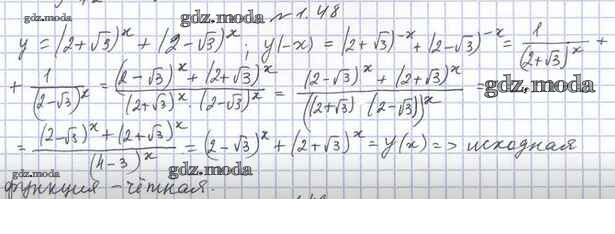 gdz.moda gdz.moda № 1.48
y = (2+√3)^x + (2-√3)^x ; y(-x) = (2+√3)^-x + (2-√3)^-x = 1/(2+√3)^x +
+ 1/(2-√3)^x = ((2-√3)^x + (2+√3)^x)/((2+√3)^x · (2-√3)^x) = ((2-√3)^x + (2+√3)^x)/((2+√3) · (2-√3))^x = gdz.moda
= ((2-√3)^x + (2+√3)^x)/(4-3)^x = (2-√3)^x + (2+√3)^x = y(x) => исходная
gdz.moda gdz.moda
функция - чётная.